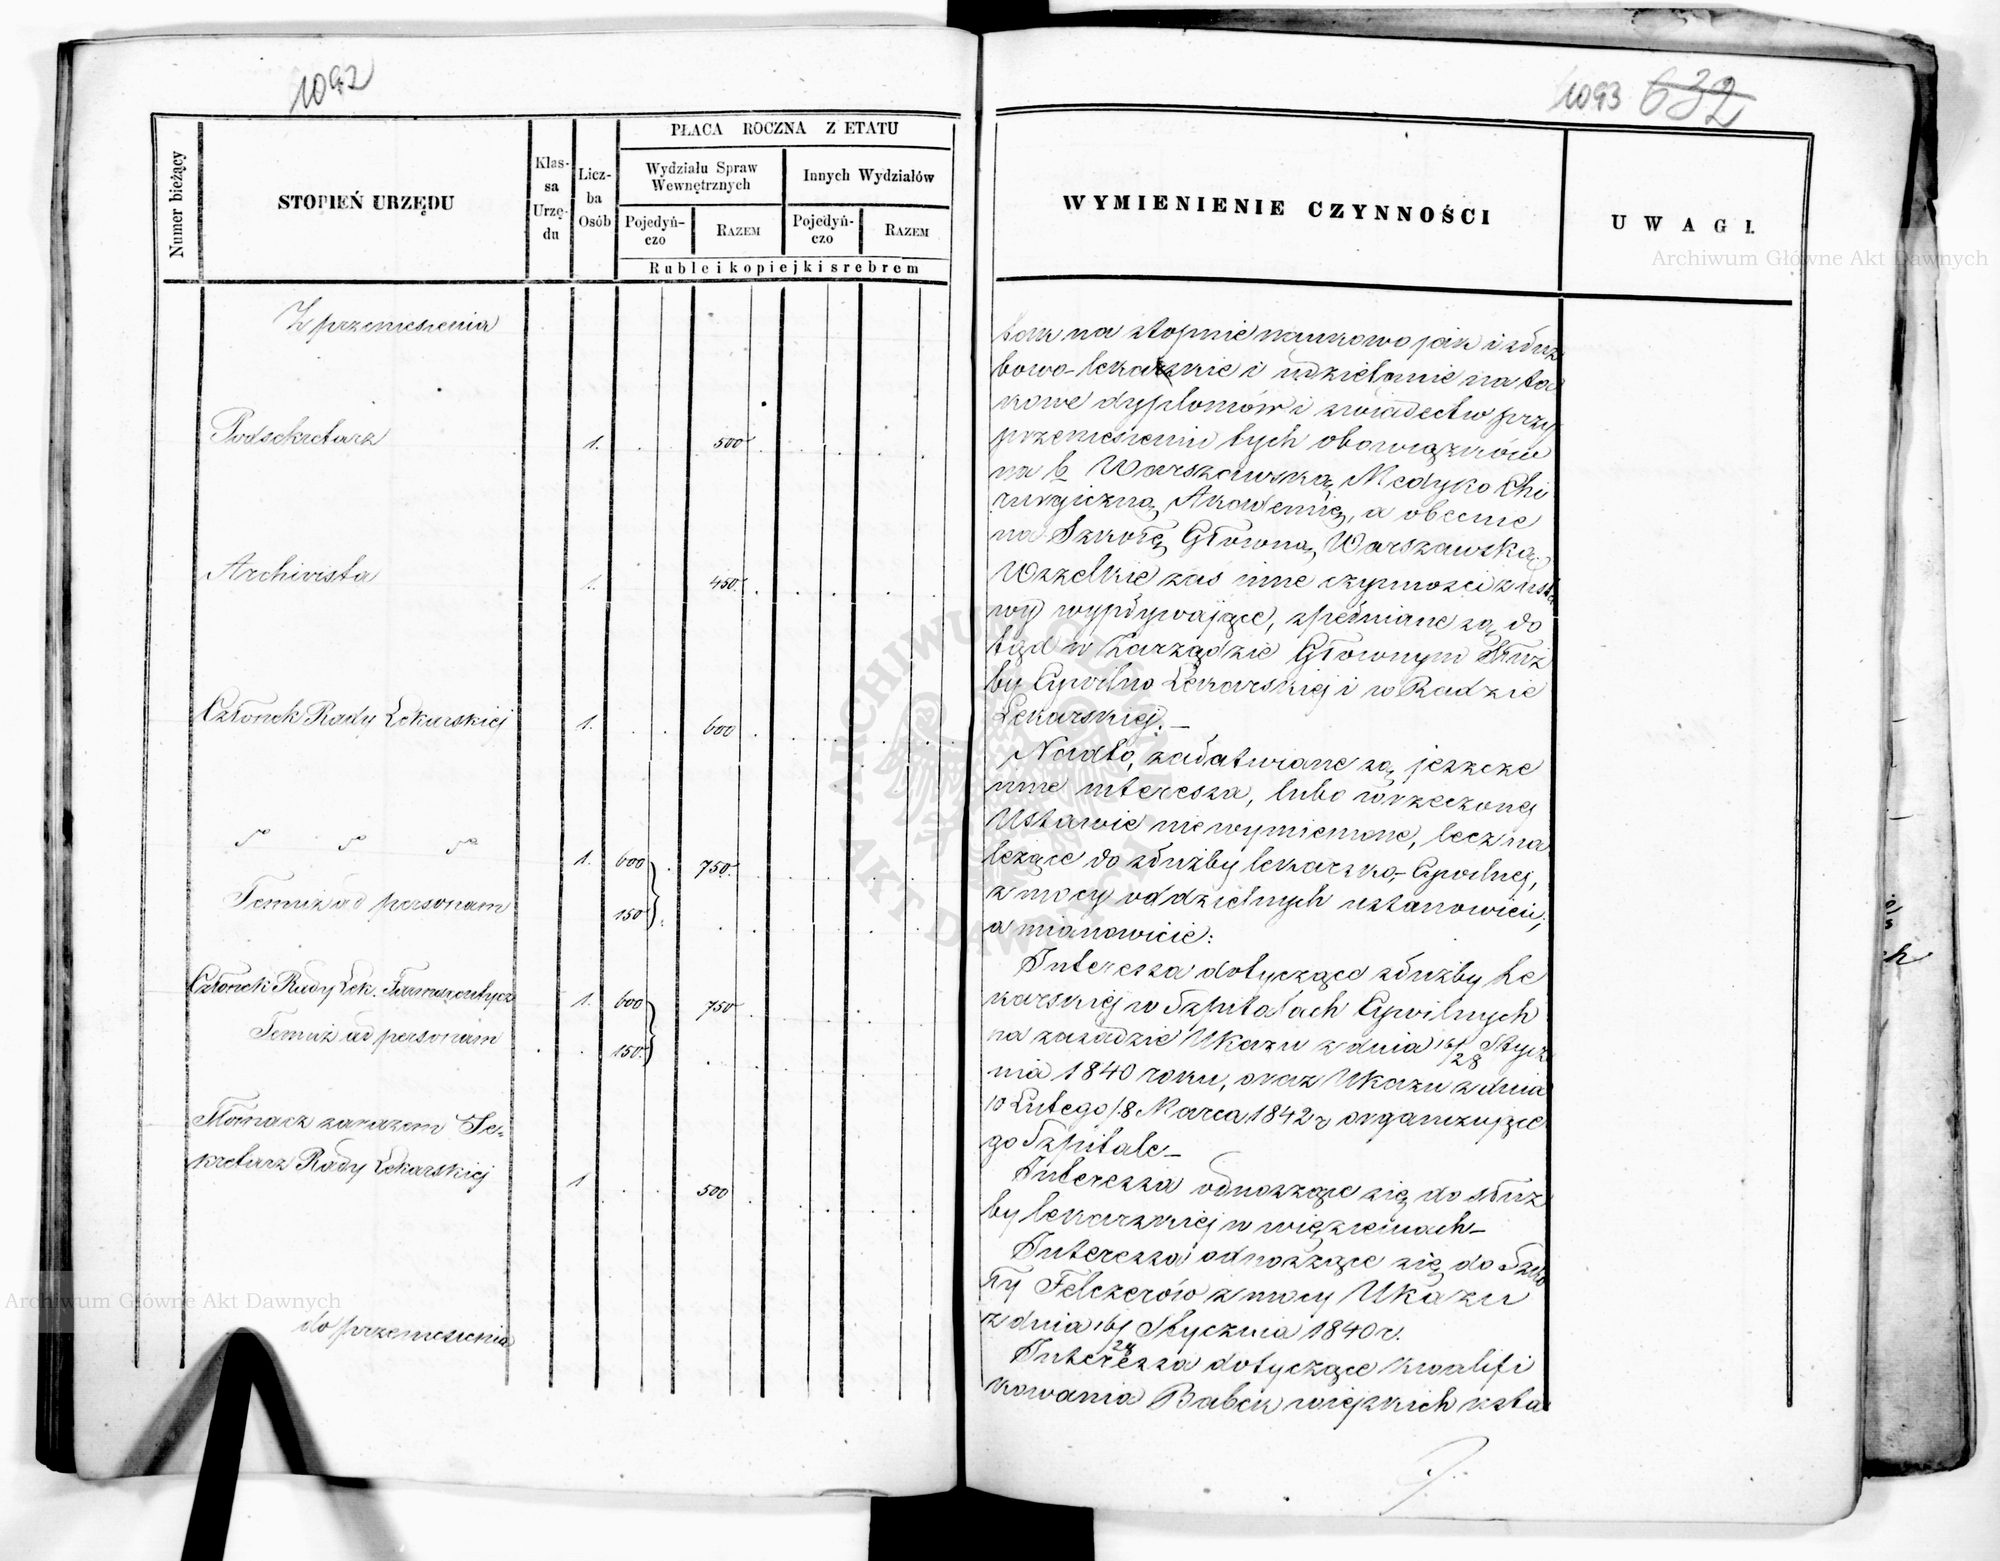 1092
Numer bieżący
STOPIEŃ URZĘDU
Klas-
sa
Urzę-
du
Licz-
ba
Osób
PŁACA ROCZNA Z ETATU
Wydziału Spraw
Wewnętrznych
Innych Wydziałów
Pojedyń-
czo
RAZEM
Pojedyń-
czo
RAZEM
Ruble i kopiejki srebrem
Z przeniesienia
Podsekretarz 1. 500
Archivista 1. 450.
Członek Rady Lekarskiej 1. 600
" " " 1. 600 750.
Temuż ad personam 150
Członek Rady Lek. Farmaceutycz 1. 600 750
Temuż ad personam 150.
Tłomacz zarazem Se-
kretarz Rady Lekarskiej 1 500
do przeniesienia
1093 632
WYMIENIENIE CZYNNOŚCI
UWAGI.
na stopnie naukowo jak i służ
bowo-lekarskie i udzielanie na ta
kowe dyplomów i świadectw przy
przeniesieniu tych obowiązków
na b. Warszawską Medyko Chi
rurgiczną Akademię, a obecnie
na Szkołę Główną Warszawską.
Wszelkie zaś inne czynności z usta
wy wypływające, spełniane są do
tąd w Zarządzie Głównym Służ
by Cywilno Lekarskiej i w Radzie
Lekarskiej.—
Nadto, załatwiane są jeszcze
inne interessa, lubo w rzeczonej
Ustawie niewymienione, lecz na
leżące do służby lekarsko-Cywilnej,
z mocy oddzielnych ustanowień,
a mianowicie:
Interessa dotyczące służby Le
karskiej w Szpitalach Cywilnych
na zasadzie Ukazu z dnia 16/28 Stycz
nia 1840 roku, oraz Ukazu z dnia
Lutego/8 Marca 1842 r organizujące
go Szpitale—
Interessa odnoszące się do służ
by lekarskiej w więzieniach—
Interessa odnoszące się do Szko
ły Felczerów z mocy Ukazu
z dnia 16/28 Stycznia 1840 r.
Interessa dotyczące kwalifi
kowania Babek wiejskich
Archiwum Główne Akt Dawnych
Archiwum Główne Akt Dawnych
ARCHIWUM GŁÓWNE
AKT DAWNYCH